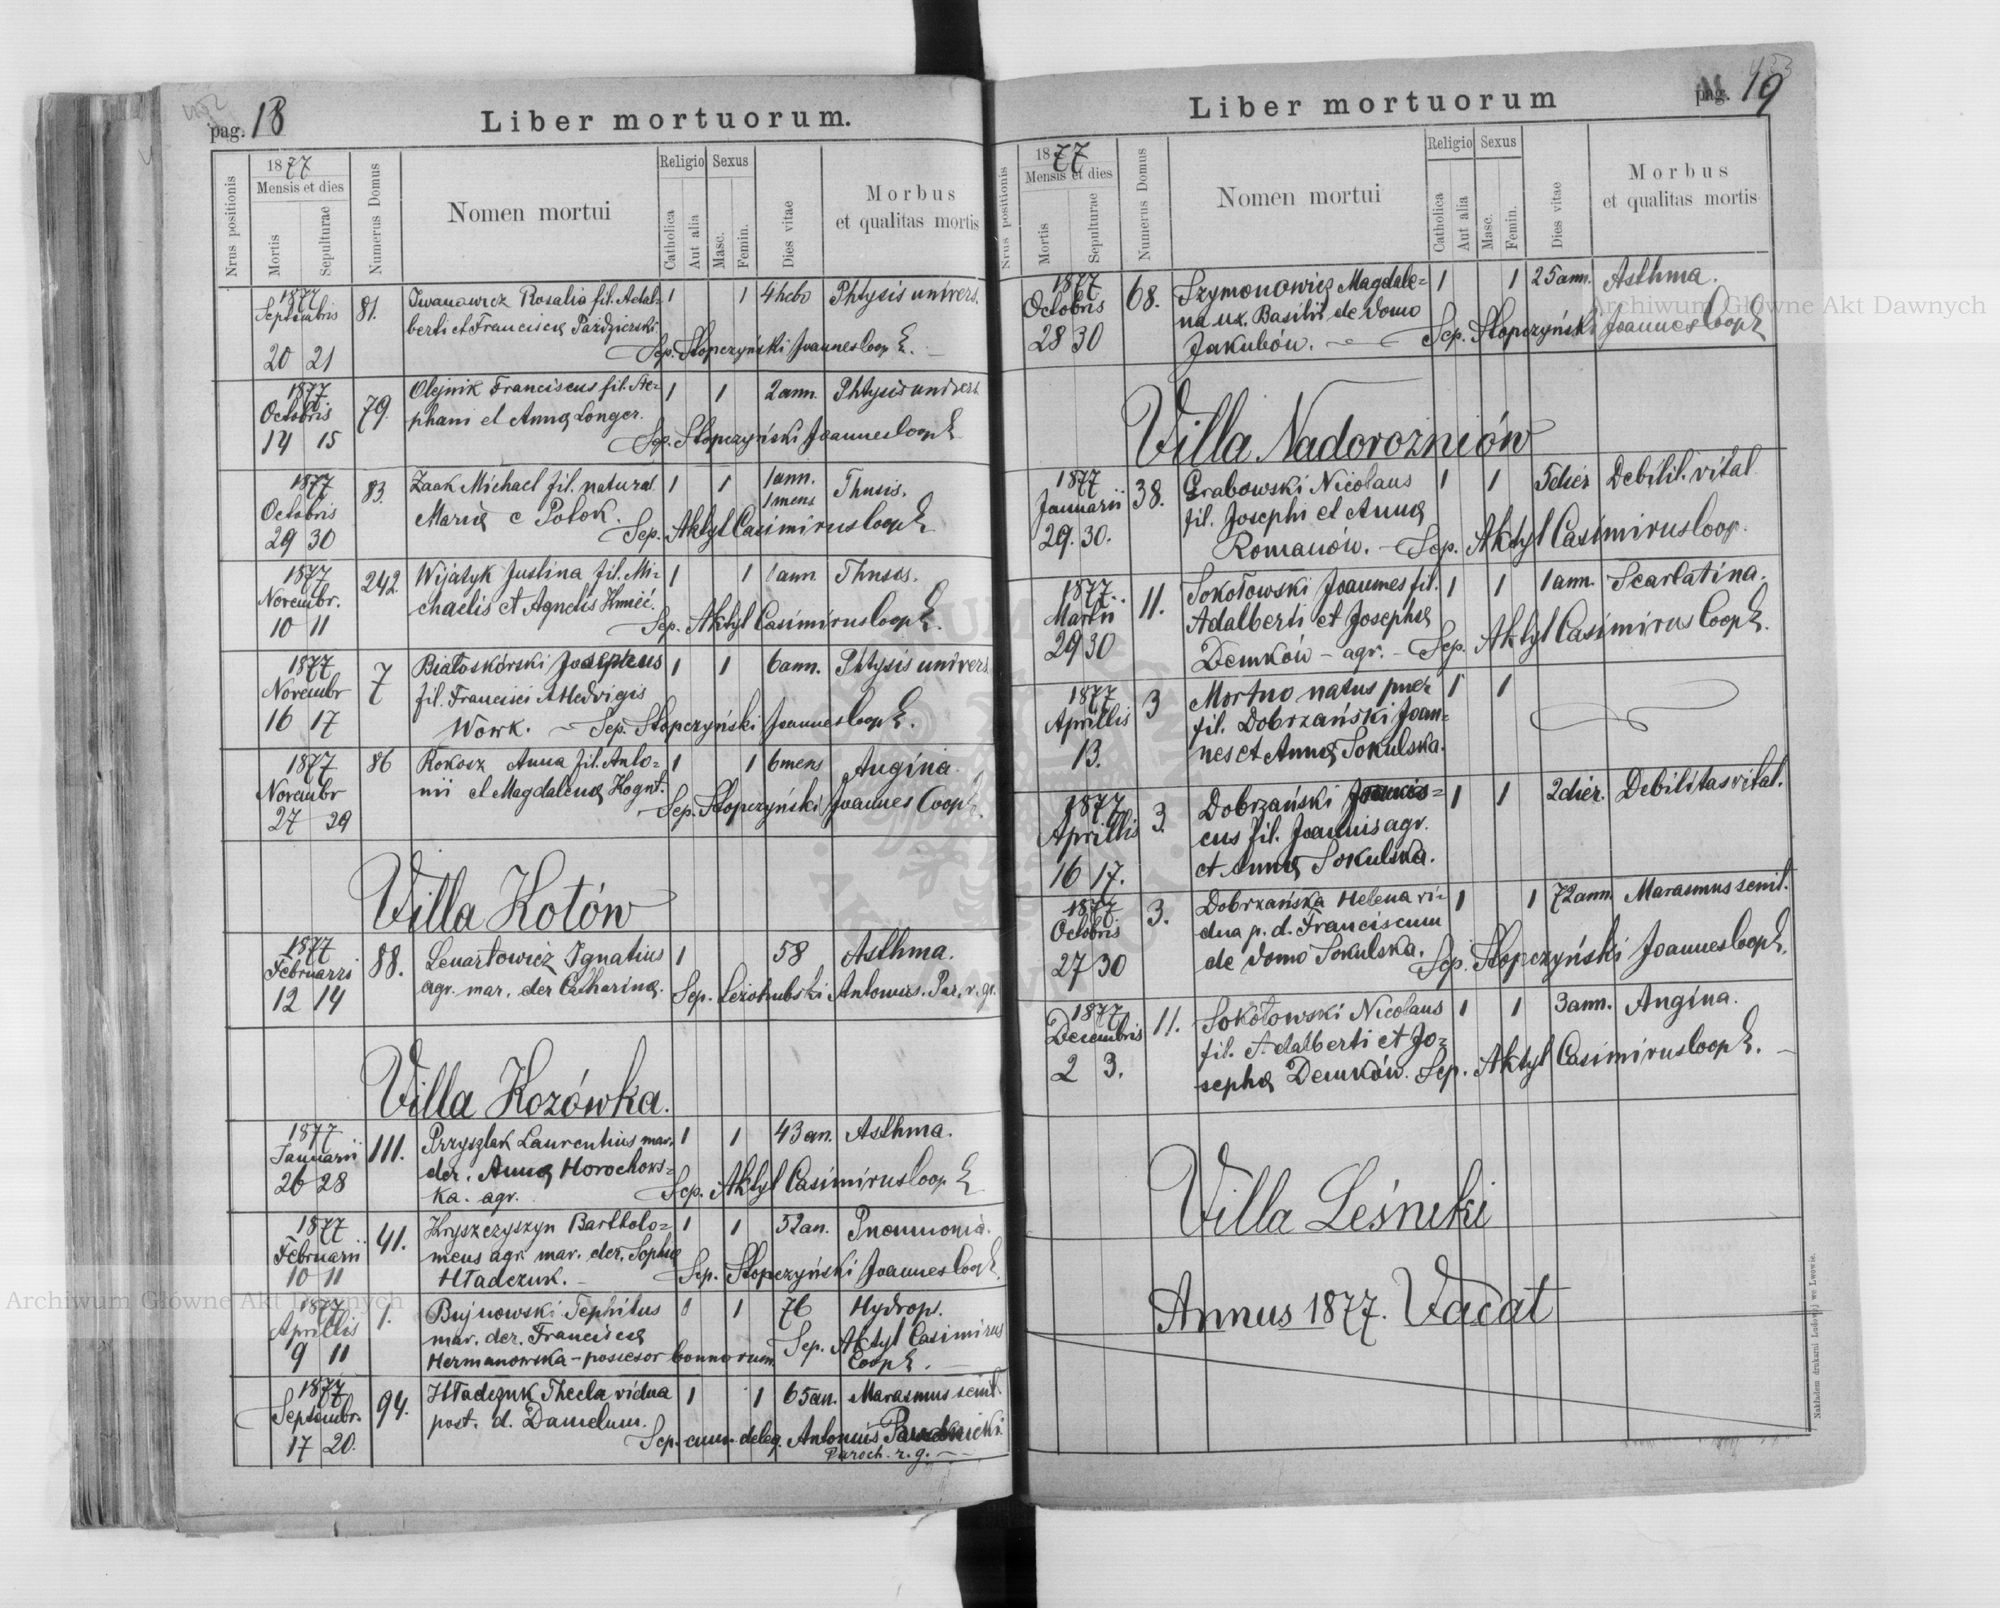 pag. 18
Liber mortuorum.
Nrus positionis
1877
Mensis et dies
Mortis
Sepulturae
Numerus Domus
Nomen mortui
Religio
Catholica
Aut alia
Sexus
Masc.
Femin.
Dies vitae
Morbus
et qualitas mortis
1877 Septembris 20 21
81.
Iwanowicz Rosalia fil. Adal=
berti et Franciscą Październski
1 1 4 hebd Phtysis univers.
Sep. Słopczyński Joannes Coop E.
1877. Octobris 14 15
79.
Olejnik Franciscus fil. Ste=
phani et Anną Longer.
1 1 2 ann. Phtysis univers.
Sep. Słopczyński Joannes Coop E
1877 Octobris 29 30
83.
Zaak Michael fil. natural
Marią e Polok.
1 1 1 ann. 1 mens Thusis.
Sep. Aktyl Casimirus Coop E
1877 Novembr. 10 11
242.
Wijatyk Justina fil. Mi=
chaelis et Agnetis Kmieć.
1 1 1 ann. Thusis.
Sep. Aktyl Casimirus Coop E.
1877 Novembr 16 17
7
Białoskórski Josephus
fil. Francisci et Hedvigis
Work. – Sep. Słopczyński Joannes Coop E.
1 1 6 ann. Phtysis univers
1877 Novembr 27 29
86
Kokosz Anna fil. Anto=
nii et Magdaleną Hognt.
1 1 6 mens Angina.
Sep. Słopczyński Joannes Coop E.
Villa Kotów
1877 Februarii 12 14
88.
Lenartowicz Ignatius
agr. mar. der Cathariną.
1 58 Asthma.
Sep. Antonius. Par. r. gr.
Villa Kozówka.
1877 Januarii 26 28
111.
Przyszlak Laurentius mar.
der. Anną Horochows=
ka. agr.
1 1 43 an. Asthma.
Sep. Aktyl Casimirus Coop E
1877 Februarii 10 11
41.
Kryszczyszyn Bartholo=
meus agr. mar. der. Sophią
Hładczuk. –
1 1 52 an. Pneumonia.
Sep. Słopczyński Joannes Coop E
1877 Aprillis 9 11
1.
Bujnowski Tephilus
mar. der. Franciscą
Hermanowska – possesor bonnorum.
1 76 Hydrops.
Sep. Aktyl Casimirus
Coop E.
1877 Septembr. 17 20.
94.
Hładczuk Thecla vidua
post. d. Danielum.
1 1 65 an. Marasmus senil.
Sep. cum deleg. Antonius
Paroch. r. g.
pag. 19
Liber mortuorum
Nrus positionis
1877
Mensis et dies
Mortis
Sepulturae
Numerus Domus
Nomen mortui
Religio
Catholica
Aut alia
Sexus
Masc.
Femin.
Dies vitae
Morbus
et qualitas mortis
1877 Octobris 28 30
68.
Szymonowicz Magdale=
na ux. Basilii de domo
Jakubów.
1 1 25 ann. Asthma.
Sep. Słopczyński Joannes Coop E
Villa Nadorozniów
1877 Januarii 29. 30.
38.
Grabowski Nicolaus
fil. Josephi et Anną
Romanów. – Sep. Aktyl Casimirus Coop.
1 1 5 dier Debilit. vital
1877. Martii 29 30
11.
Sokołowski Joannes fil.
Adalberti et Josephą
Demków – agr. – Sep. Aktyl Casimirus Coop E.
1 1 1 ann. Scarlatina.
1877 Aprillis 13.
3
Mortuo natus puer
fil. Dobrzański Joan=
nes et Anną Sokulska.
1 1
1877 Aprillis 16 17.
3.
Dobrzański
cus fil. Joannis agr.
et Anną Sokulska.
1 1 2 dier. Debilitas vital.
1877 Octobris 27 30
3.
Dobrzańska Helena vi=
dua p. d. Franciscum
de domo Sokulska.
1 1 72 ann. Marasmus senil.
Sep. Słopczyński Joannes Coop E.
1877 Decembris 2 3.
11.
Sokołowski Nicolaus
fil. Adalberti et Jo=
sephą Demków. Sep. Aktyl Casimirus Coop E. –
1 1 3 ann. Angina.
Villa Leśniki
Annus 1877. Vacat
Nakładem drukarni Ludowej we Lwowie.
Archiwum Główne Akt Dawnych
Archiwum Główne Akt Dawnych